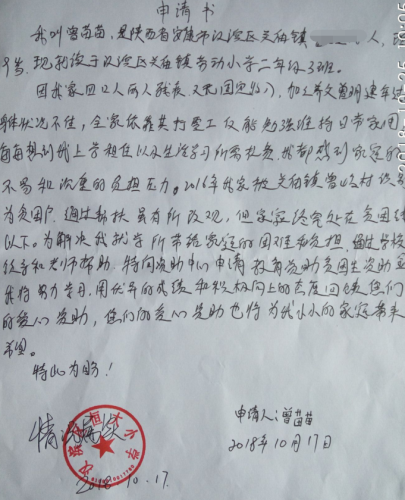 申请书
我叫曾苗苗,是陕西省安康市汉滨区关庙镇 人,
岁,现就读于汉滨区关庙镇劳动小学二年级3班。
因我家四口人两人残疾又无固定收入,加上养父曾明建年
身体状况不佳,全家依靠其打零工仅能勉强维持日常家用
每每想到我上学租住以及生活学习所需花费,我都感到家庭的
不易和沉重的负担压力。2016年我家被关庙镇曾 村
为贫困户,通过帮扶虽有所改观,但家容始终处在贫困线
以下。为解决我就学所带给家庭的困难和负担,通过学校
领导和老师帮助,特向资助中心申请 资助贫困生资助
我将努力学习,用优异的成绩和积极向上的态度回馈您们
的爱心资助,您们的爱心资助也将为我小小的家庭带来
希望。
特此为盼!
情况属实
恒大小学
申请人:曾苗苗
2018年10月17日
2018.10.17.